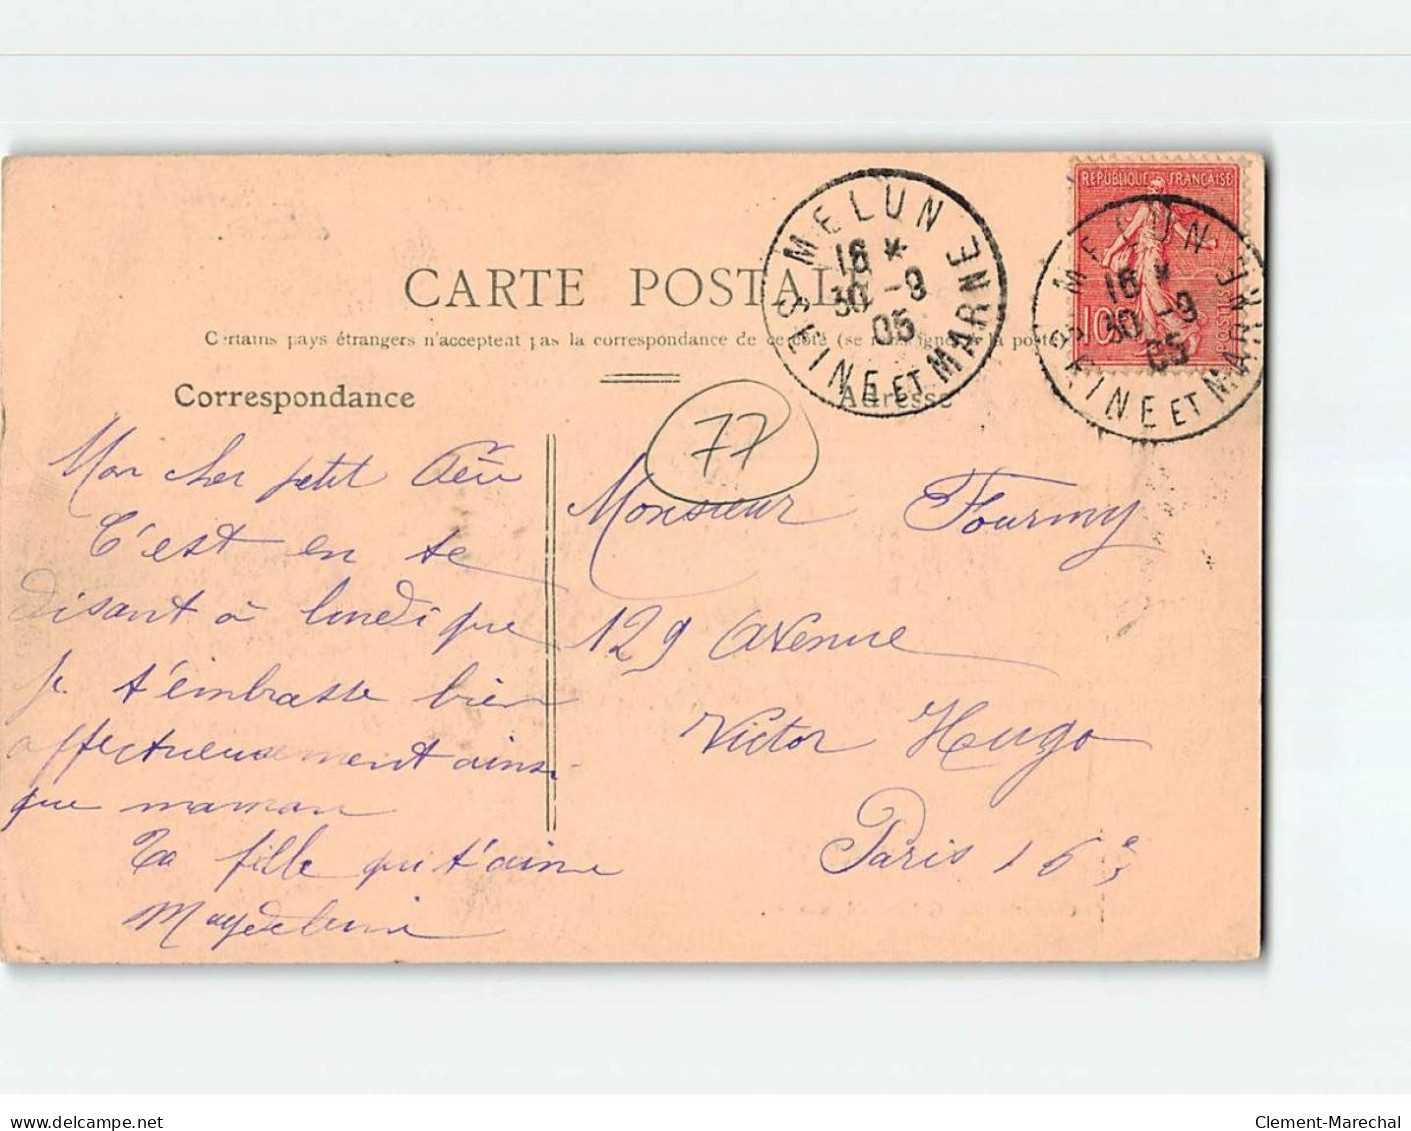 RÉPUBLIQUE FRANÇAISE
10
POSTES
MELUN
16 *
30 -9
05
SEINE ET MARNE
MELUN
16 *
30 -9
05
SEINE ET MARNE
CARTE POSTALE
Certains pays étrangers n'acceptent pas la correspondance de ce côté (se renseigner à la poste)
Correspondance
Adresse
77
Mon cher petit
C'est en te
disant à lundi que
je t'embrasse bien
affectueusement ainsi
que maman
Ta fille qui t'aime
Magdeleine
Monsieur Fourmy
129 Avenue
Victor Hugo
Paris 16e
delcampe.net
Clement-Marechal